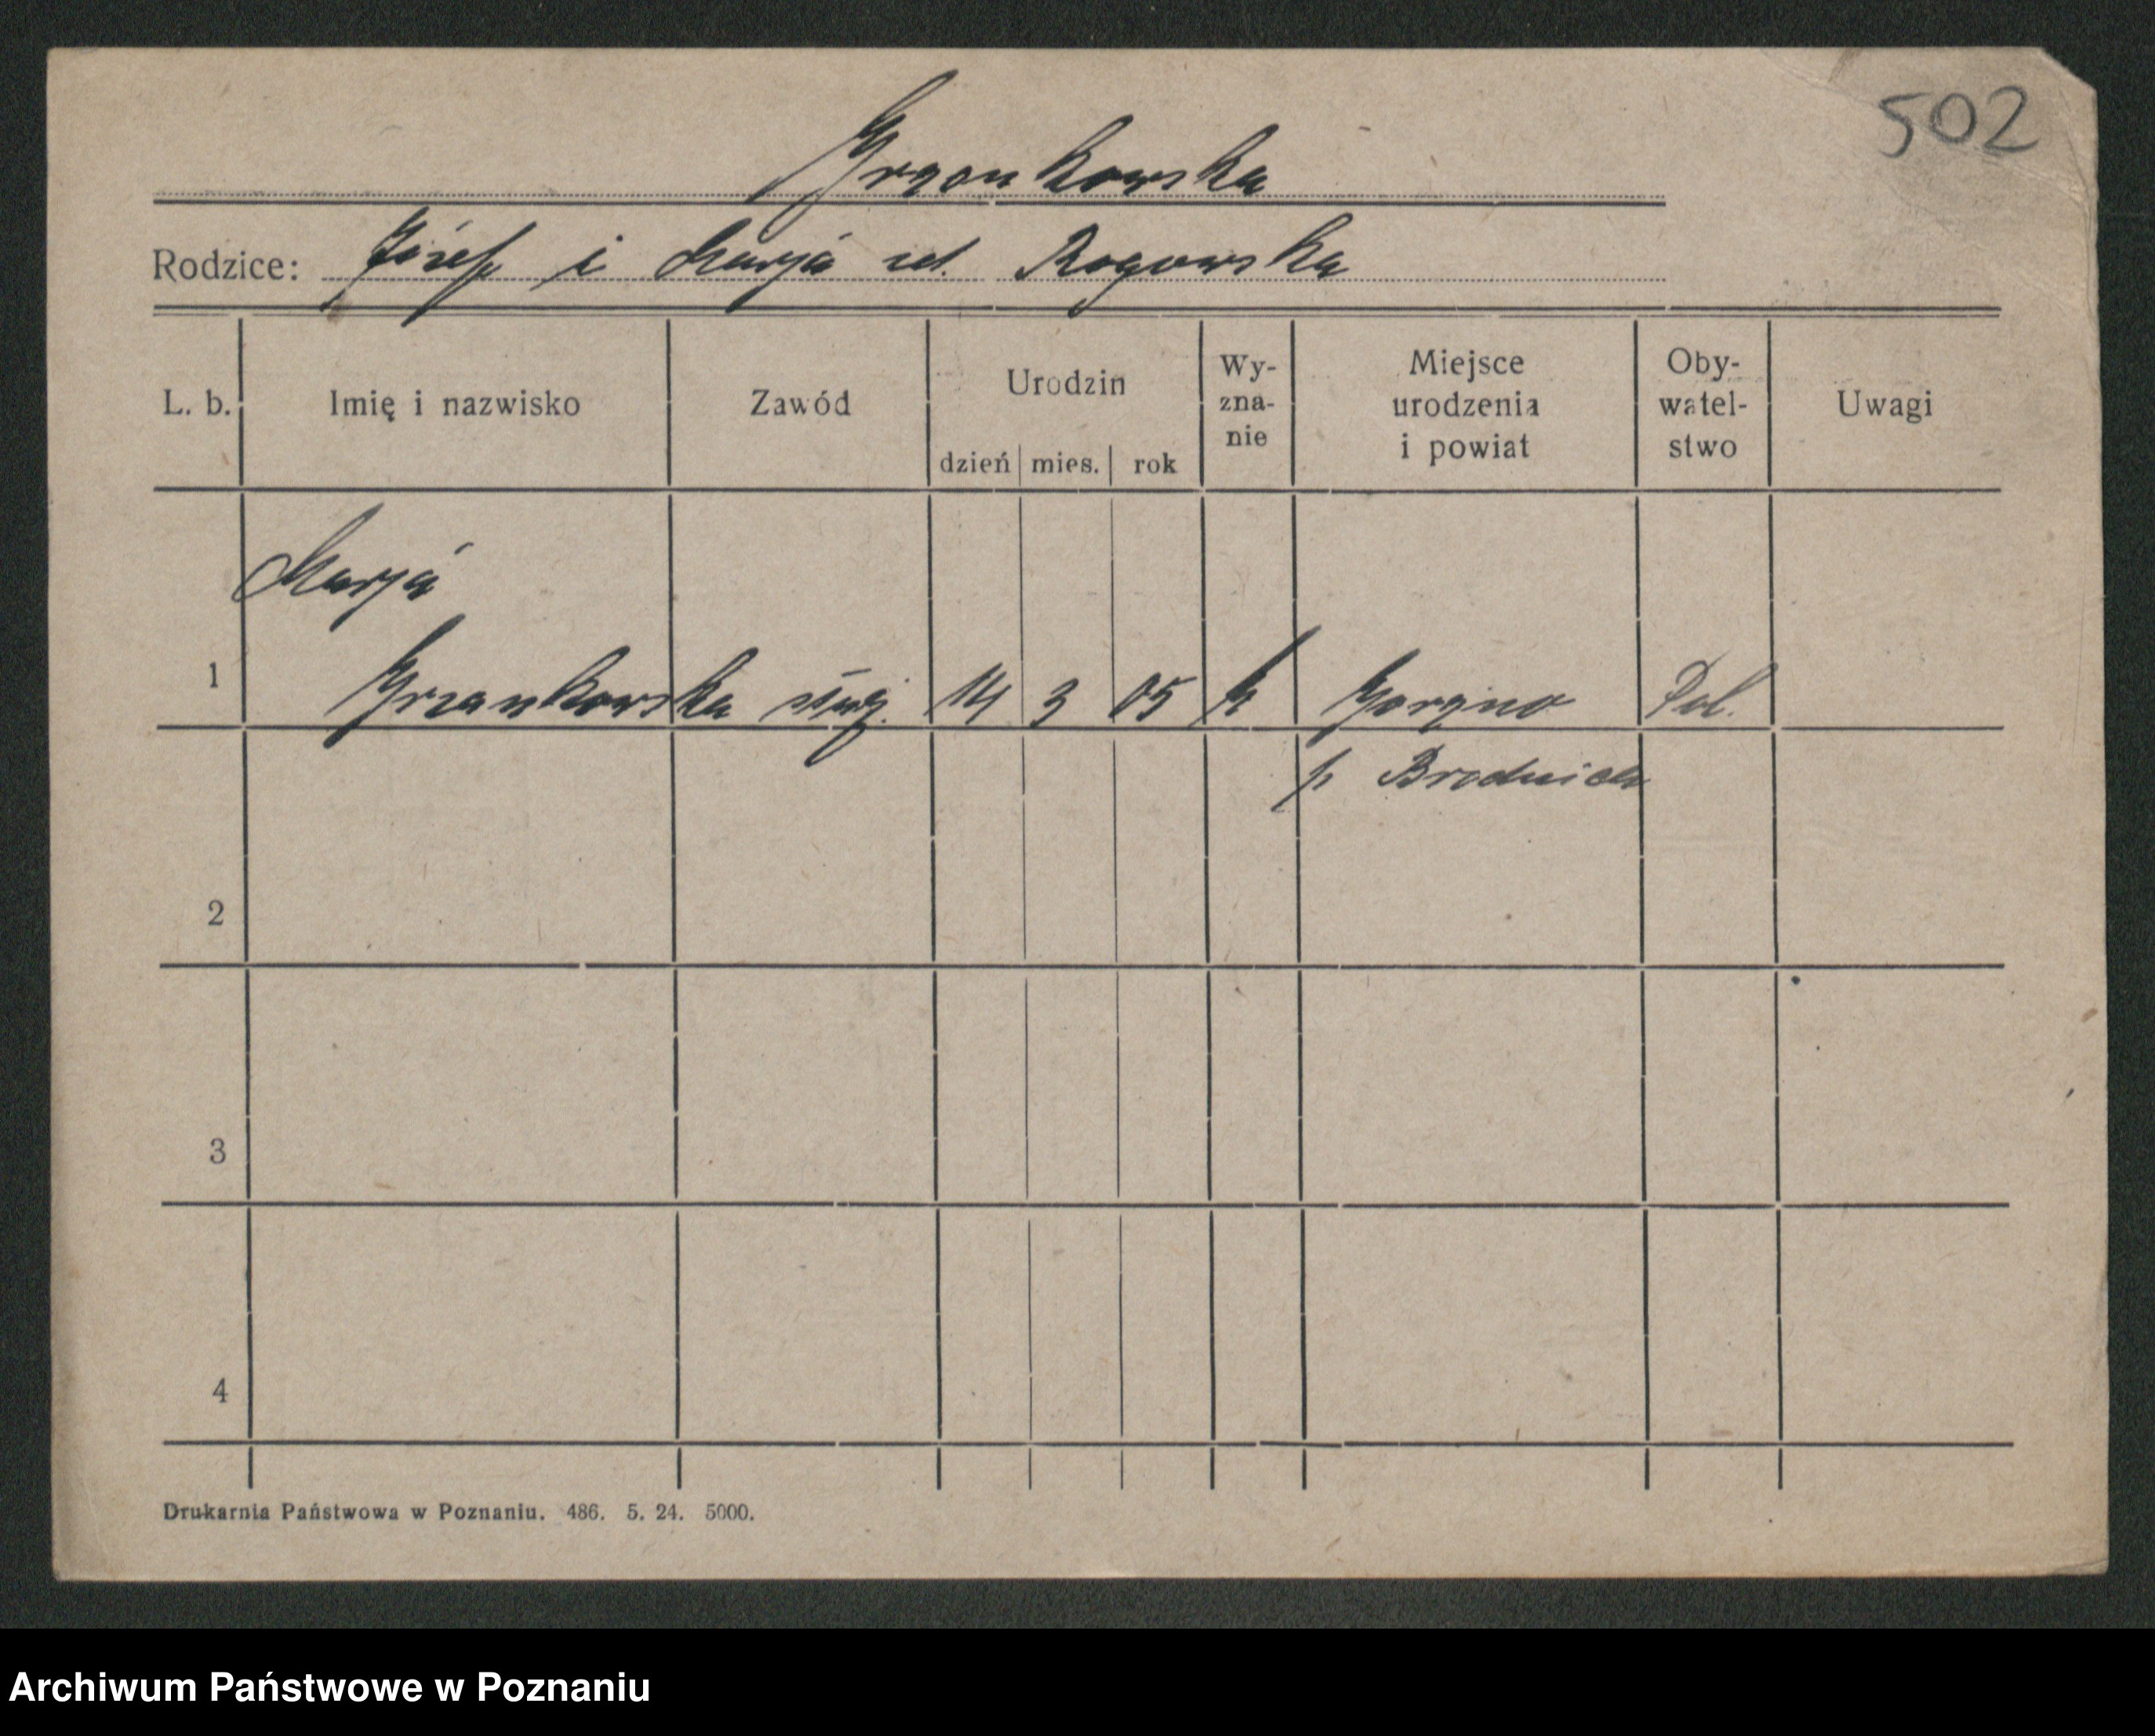 502
Grzankowska
Rodzice: Józef i Marja zd. Rogowska
L. b. Imię i nazwisko Zawód Urodzin dzień mies. rok Wy-zna-nie Miejsce urodzenia i powiat Oby-watel-stwo Uwagi
Marja
1 Grzankowska służ. 14 3 05 k Gorzno Pol.
p Brodnica
2
3
4
Drukarnia Państwowa w Poznaniu. 486. 5. 24. 5000.
Archiwum Państwowe w Poznaniu